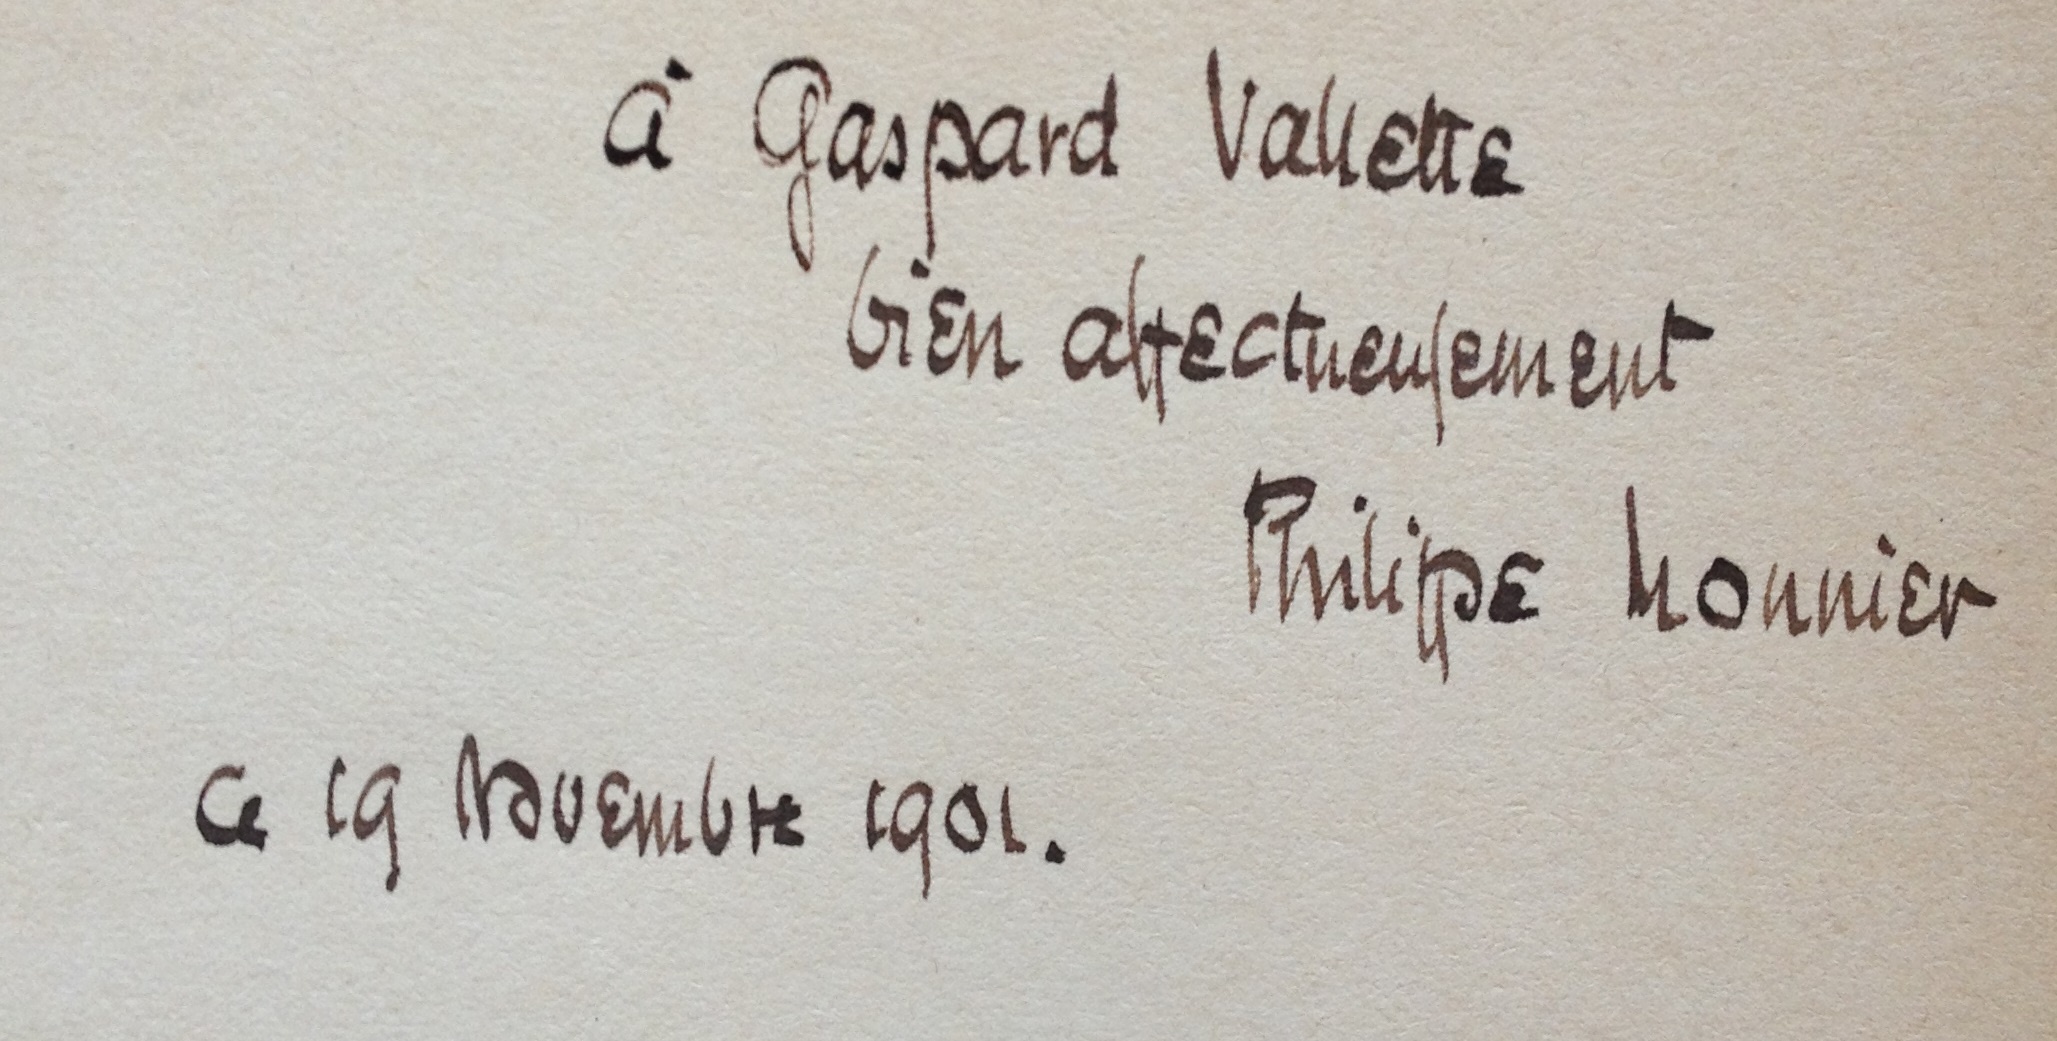 à Gaspard Vallette
bien affectueusement
Philippe Monnier
Ce 19 Novembre 1901.